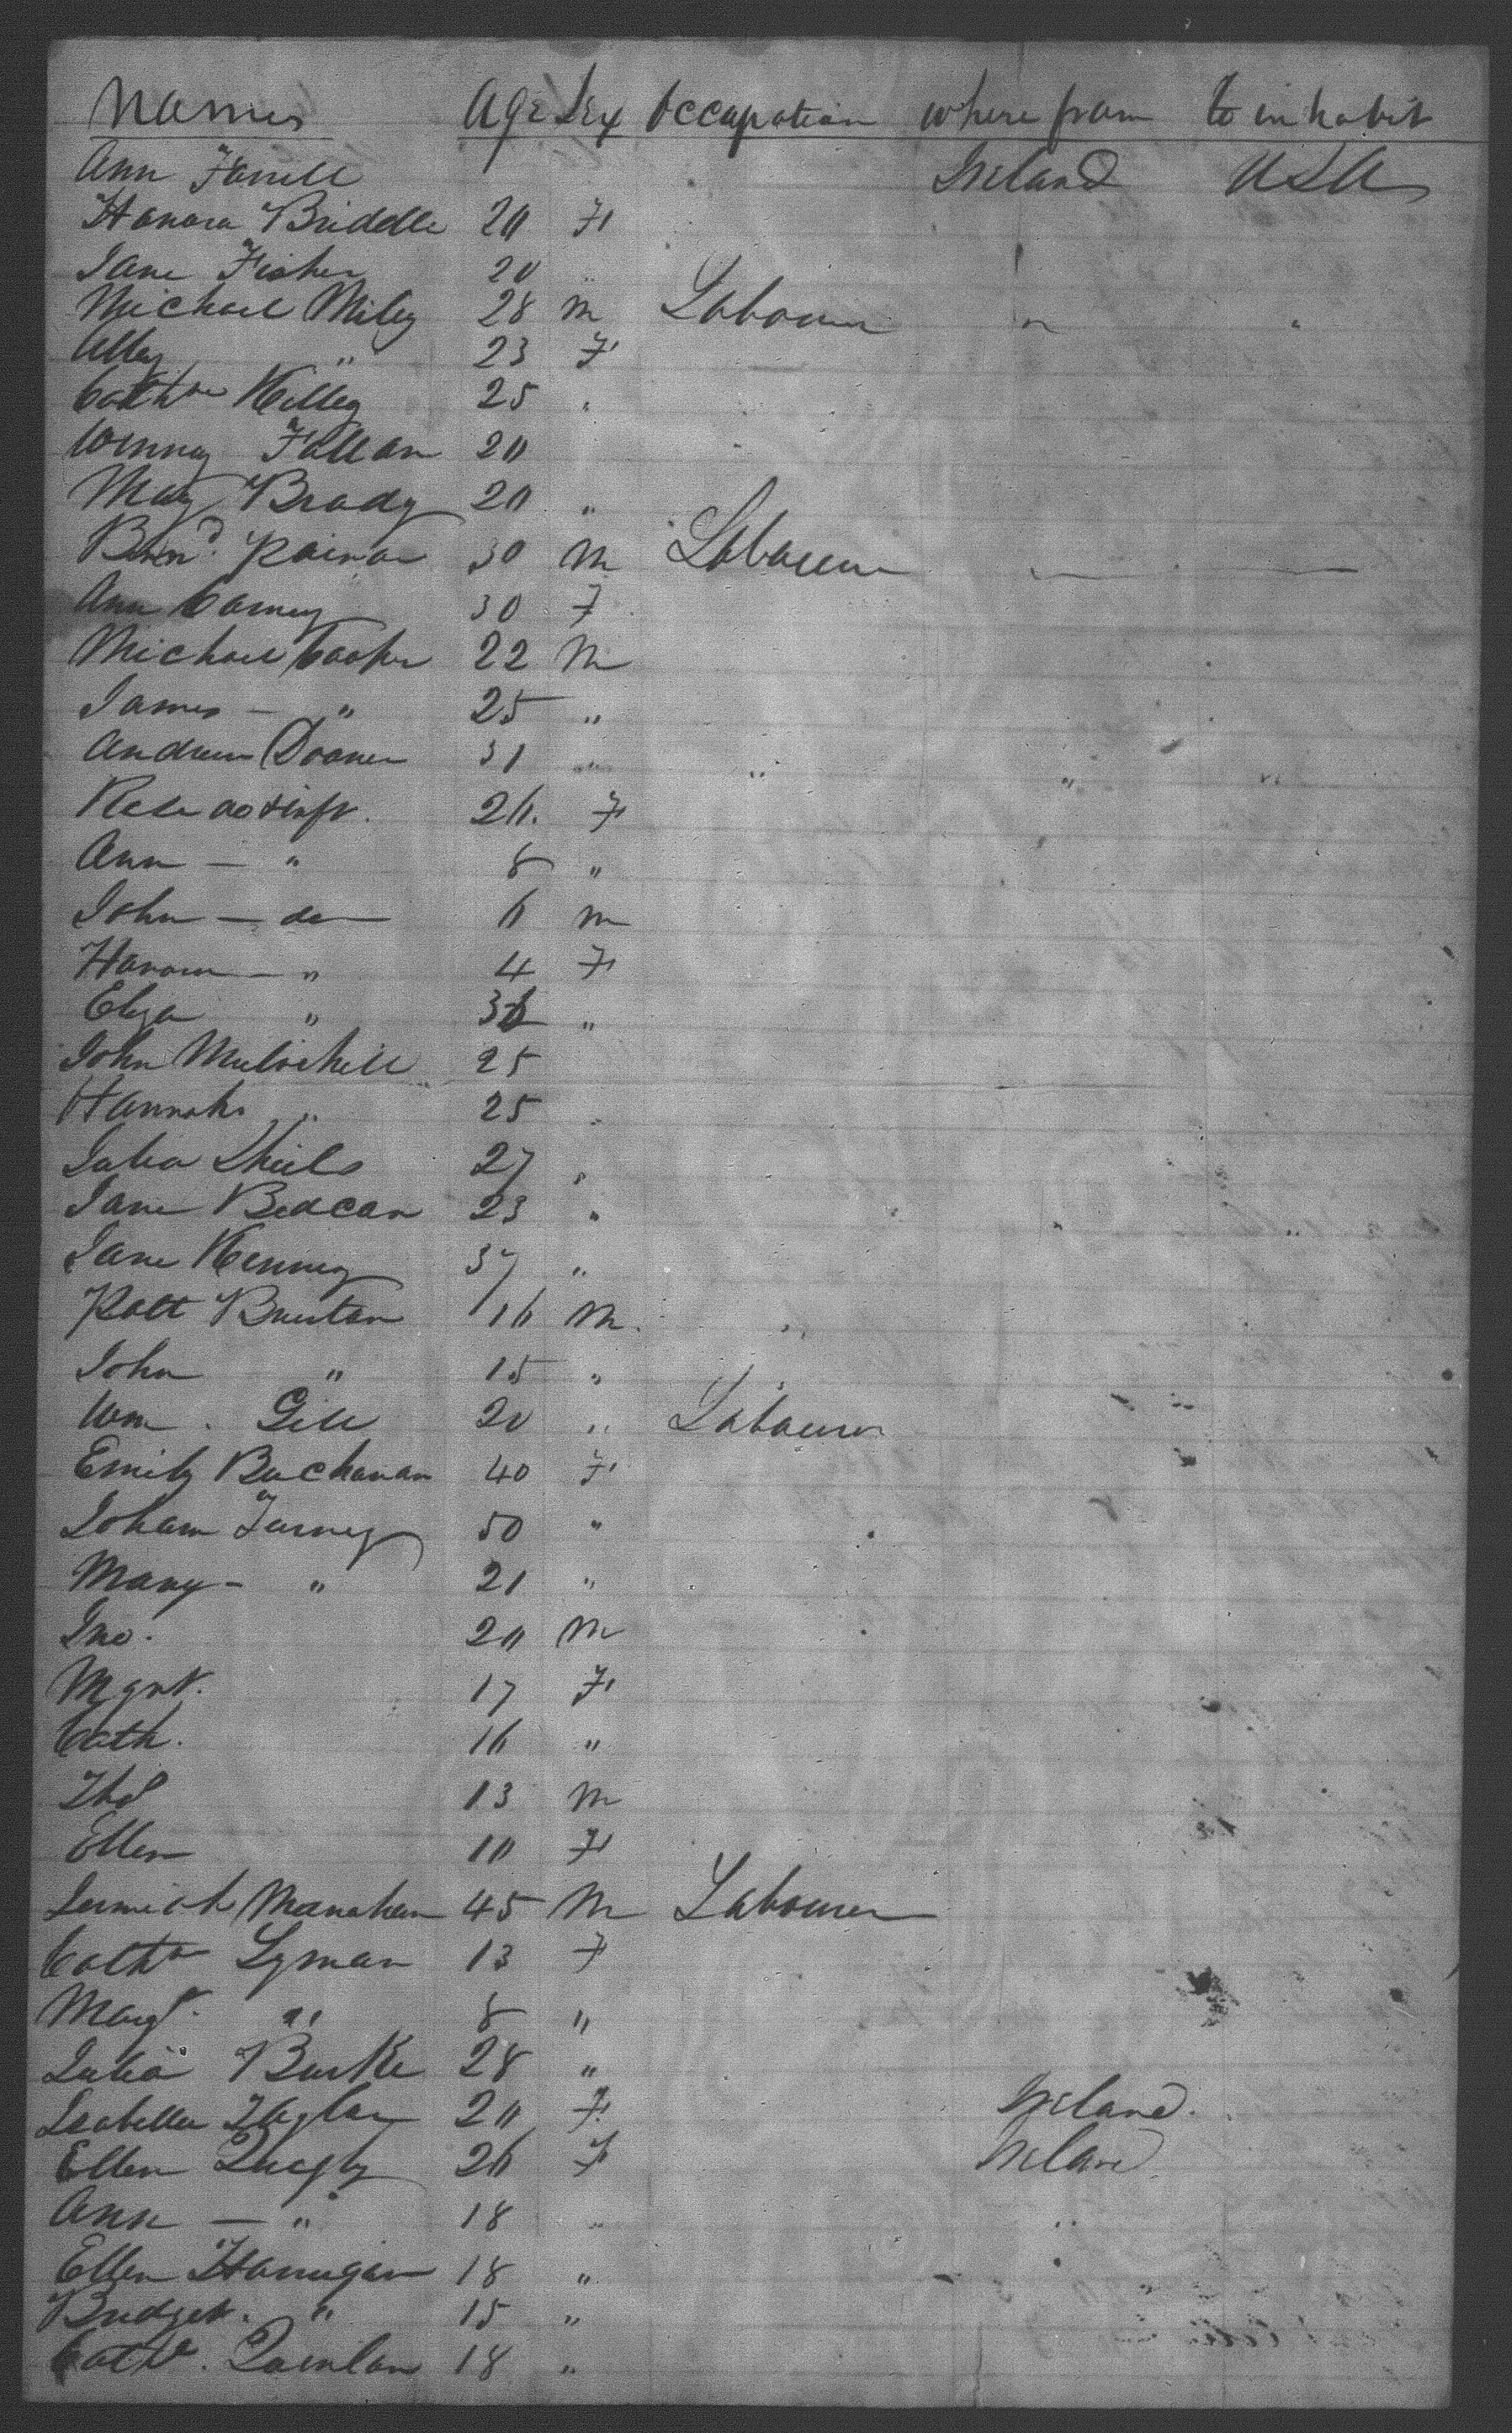 Names Age Sex Occupation where from to inhabit
Ann Farrell Ireland USA
Hanora Briddle 20 F
Jane Fisher 20 "
Michael Miley 28 M Labourer " "
Alley " 23 F
Cathne Killey 25 "
Winney Fallan 20
May Brady 20 "
Bernd. 30 M Labourer
Ann Carney 30 F
Michael Cooper 22 M
James - " 25 "
Andrew Dooner 31 " " " "
26. F
Ann - " 8 "
John - do 6 M
Hanora - " 4 F
Eliza " "
John 25
Hannah " 25 "
Julia Shiels 27 "
Jane 23 " " "
Jane Kenney 37 "
Patt Bruton 16 M. "
John " 15 "
Wm. Gill 20 " Labourer
Emily Buchanan 40 F
Joham 50 "
Mary - " 21 "
Jno. 20 M
Mgrt. 17 F
Cath. 16 "
Thos 13 M
Ellen 10 F
Manahan 45 M Labourer
Cathn Lyman 13 F
Margt. " 8 "
Julia Burke 28 "
Isabella Taylor 20 F. Ireland.
Ellen Quigly 26 F Ireland.
Ann - " 18 " "
Ellen Hannigan 18 " "
Bridget. " 15 "
Cathn. Quinlan 18 "